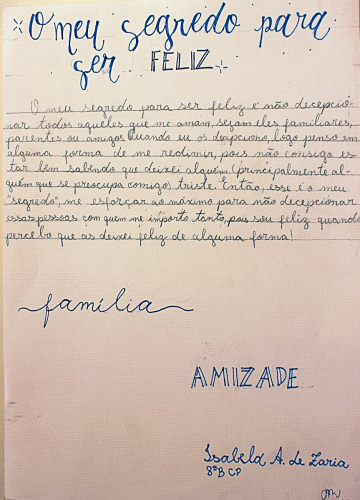 O meu segredo para
ser FELIZ
O meu segredo para ser feliz é não decepcio-
nar todos aqueles que me amam, sejam eles familiares,
parentes ou amigos. Quando eu os decepciono, logo penso em
alguma forma de me redimir, pois não consigo es
tar bem sabendo que deixei alguém (principalmente al-
guém que se preocupa comigo) triste. Então, esse é o meu
"segredo", me esforçar ao máximo para não decepcionar
essas pessoas com quem me importo tanto, pois sou feliz quando
percebo que as deixei feliz de alguma forma!
família
AMIZADE
A. de
8ºB CP